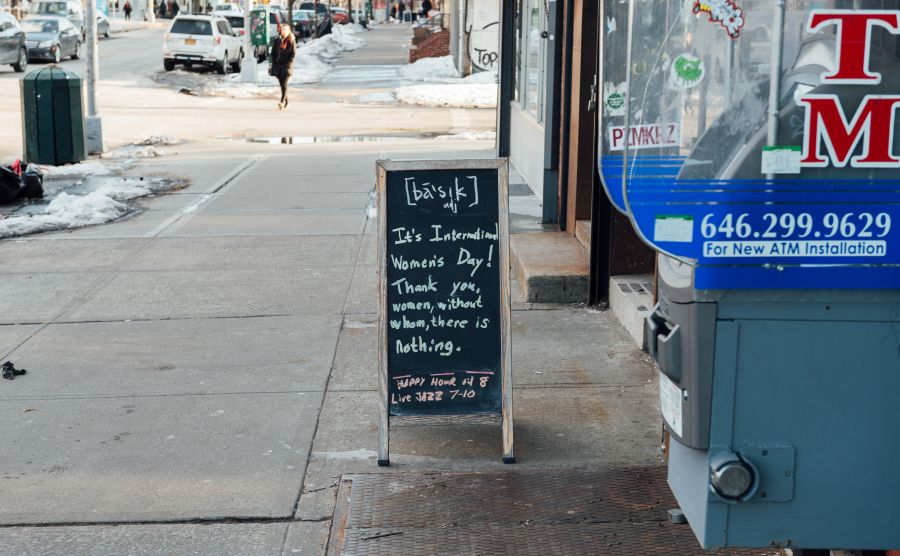 [bā'sik]
adj
It's International
Women's Day!
Thank you,
women, without
whom, there is
nothing.
HAPPY HOUR til 8
Live JAZZ 7-10
TM
646.299.9629
For New ATM Installation
PZMKRZ
TOP